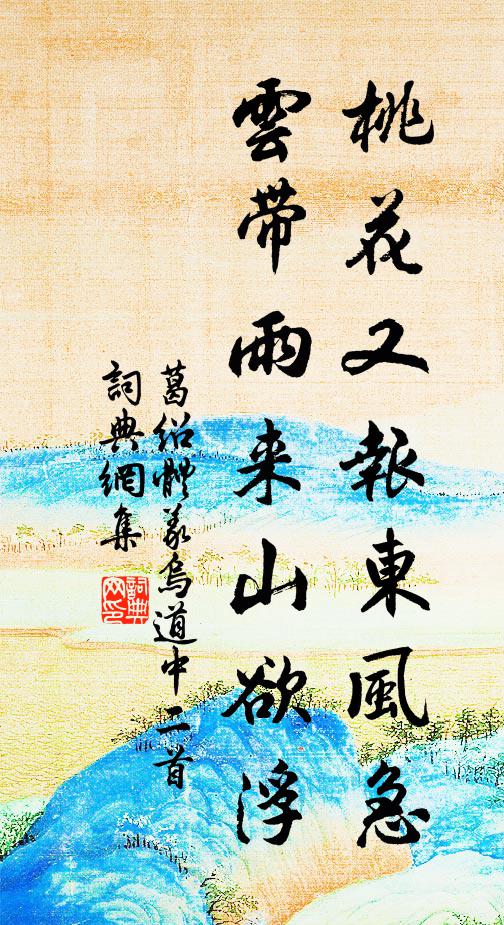 桃花又報東風急
雲帶雨来山欲浮
葛紹體義烏道中二首
詞典網集
詞典